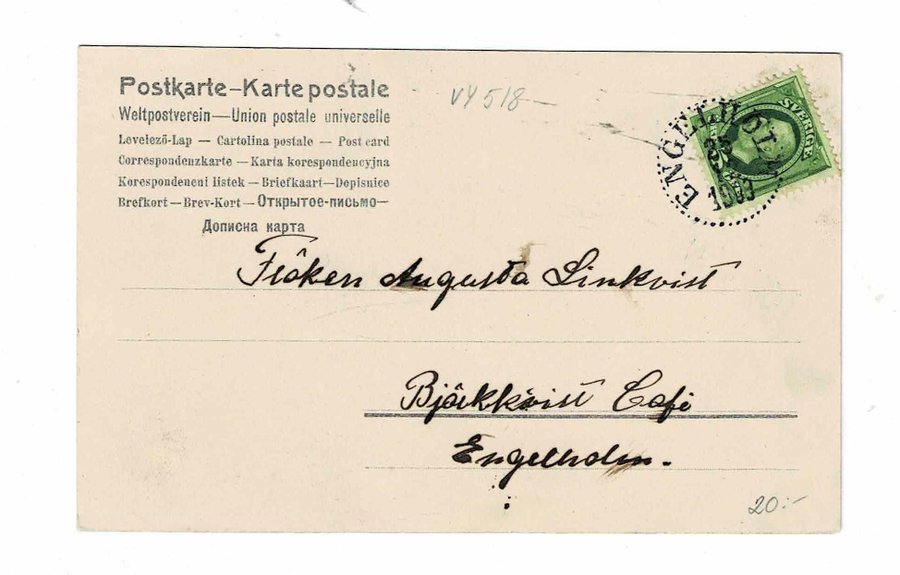 Postkarte–Karte postale
Weltpostverein—Union postale universelle
Levelező-Lap — Cartolina postale — Post card
Correspondenzkarte — Karta korespondencyjna
Korespondencni listek — Briefkaart—Dopisnice
Brefkort — Brev-Kort — Открытое-письмо—
Дописна карта
VY 518—
SVERIGE
ENGELHOLM
1903
Fröken Augusta Linkvist
Bjäckkvist Café
Engelholm.
20:-